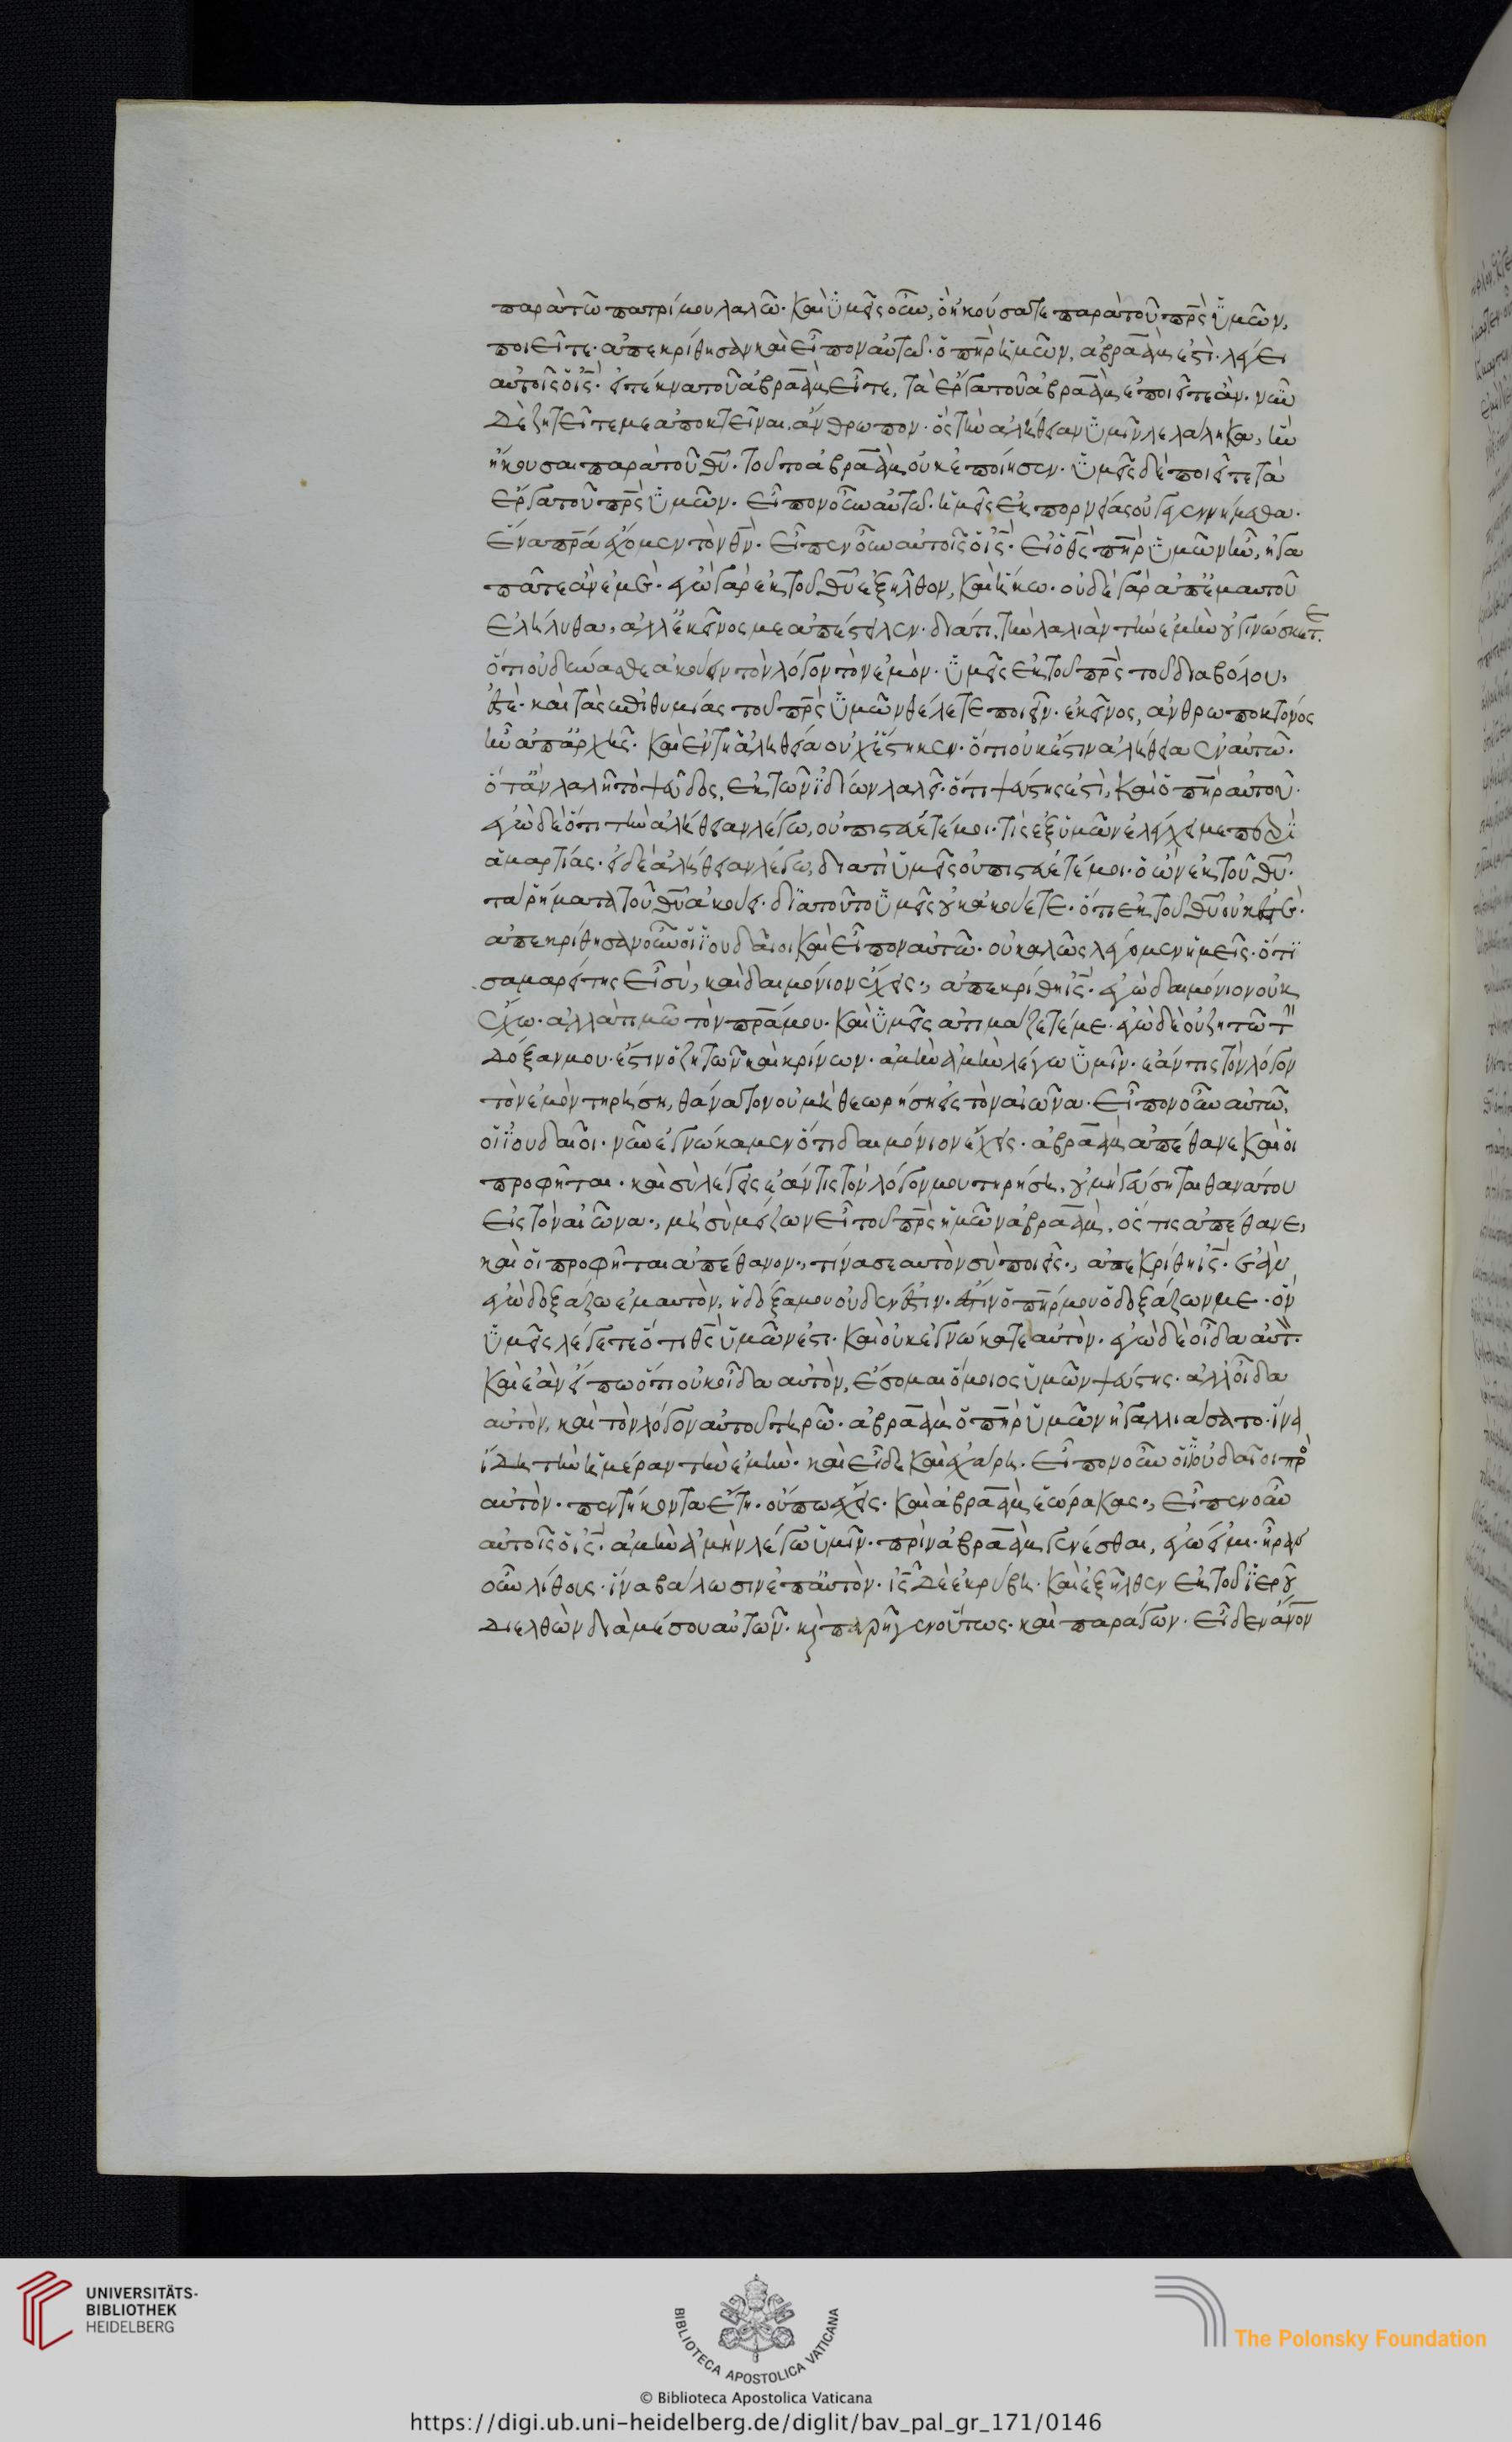 παρὰ τῶ πατρί μου λαλῶ· καὶ ὑμεῖς οὖν, ὃ ἠκούσατε παρὰ τοῦ πρ̅ς ὑμῶν,
ποιεῖτε· ἀπεκρίθησαν καὶ εἶπον αὐτῶ· ὁ πη̅ρ ἡμῶν, ἀβραὰμ ἐστὶ· λέγει
αὐτοῖς ὁ ἰς̅· εἰ τέκνα τοῦ ἀβραὰμ εἶτε, τὰ ἔργα τοῦ ἀβραὰμ ἐποιεῖτε ἄν· νῦν
δὲ ζητεῖτέ με ἀποκτεῖναι, ἄνθρωπον· ὃς τὴν ἀλήθειαν ὑμῖν λελάληκα, ἣν
ἤκουσα παρὰ τοῦ θυ̅· τοῦτο ἀβραὰμ οὐκ ἐποίησεν· ὑμεῖς δὲ ποιεῖτε τὰ
ἔργα τοῦ πρ̅ς ὑμῶν· εἶπον οὖν αὐτῶ· ἡμεῖς ἐκ πορνείας οὐ γεγεννήμεθα·
ἕνα πρ̅α ἔχομεν τὸν θν̅· εἶπεν οὖν αὐτοῖς ὁ ἰς̅· εἰ ὁ θς̅ πη̅ρ ὑμῶν ἦν, ἠγα
πᾶτε ἂν ἐμέ· ἐγὼ γὰρ ἐκ τοῦ θυ̅ ἐξῆλθον, καὶ ἥκω· οὐδὲ γὰρ ἀπ' ἐμαυτοῦ
ἐλήλυθα, ἀλλ' ἐκεῖνός με ἀπέστειλεν· διατί τὴν λαλιὰν τὴν ἐμὴν οὐ γινώσκετε.
ὅτι οὐ δύνασθε ἀκούειν τὸν λόγον τὸν ἐμόν· ὑμεῖς ἐκ τοῦ πρ̅ς τοῦ διαβόλου,
ἐστὲ· καὶ τὰς ἐπιθυμίας τοῦ πρ̅ς ὑμῶν θέλετε ποιεῖν· ἐκεῖνος, ἀνθρωποκτόνος
ἦν ἀπ' ἀρχῆς· καὶ ἐν τῆ ἀληθεία οὐχ ἕστηκεν· ὅτι οὐκ ἔστιν ἀλήθεια ἐν αὐτῶ·
ὅταν λαλῆ τὸ ψεῦδος, ἐκ τῶν ἰδίων λαλεῖ· ὅτι ψεύστης ἐστὶ, καὶ ὁ πη̅ρ αὐτοῦ·
ἐγὼ δὲ ὅτι τὴν ἀλήθειαν λέγω, οὐ πιστεύετέ μοι· τίς ἐξ ὑμῶν ἐλέγχει με περὶ
ἁμαρτίας· εἰ δὲ ἀλήθειαν λέγω, διατὶ ὑμεῖς οὐ πιστεύετέ μοι· ὁ ὢν ἐκ τοῦ θυ̅·
τὰ ῥήματα τοῦ θυ̅ ἀκούει· διὰ τοῦτο ὑμεῖς οὐκ ἀκούετε· ὅτι ἐκ τοῦ θυ̅ οὐκ ἐστέ·
ἀπεκρίθησαν οὖν οἱ ἰουδαῖοι καὶ εἶπον αὐτῶ· οὐ καλῶς λέγομεν ἡμεῖς· ὅτι
σαμαρείτης εἶ σὺ, καὶ δαιμόνιον ἔχεις·, ἀπεκρίθη ἰς̅· ἐγὼ δαιμόνιον οὐκ
ἔχω· ἀλλὰ τιμῶ τὸν πρ̅α μου· καὶ ὑμεῖς ἀτιμάζετέ με· ἐγὼ δὲ οὐ ζητῶ τὴν
δόξαν μου· ἔστιν ὁ ζητῶν καὶ κρίνων· ἀμὴν ἀμὴν λέγω ὑμῖν· ἐάν τις τὸν λόγον
τὸν ἐμὸν τηρήση, θάνατον οὐ μὴ θεωρήση εἰς τὸν αἰῶνα· εἶπον οὖν αὐτῶ,
οἱ ἰουδαῖοι· νῦν ἐγνώκαμεν ὅτι δαιμόνιον ἔχεις· ἀβραὰμ ἀπέθανε καὶ οἱ
προφῆται· καὶ σὺ λέγεις ἐάν τις τὸν λόγον μου τηρήση, οὐ μὴ γεύσηται θανάτου
εἰς τὸν αἰῶνα·, μὴ σὺ μείζων εἶ τοῦ πρ̅ς ἡμῶν ἀβραὰμ, ὅστις ἀπέθανε,
καὶ οἱ προφῆται ἀπέθανον·, τίνα σεαυτὸν σὺ ποιεῖς·, ἀπεκρίθη ἰς̅· ἐὰν
ἐγὼ δοξάζω ἐμαυτὸν, ἡ δόξα μου οὐδέν ἐστιν· ἔστιν ὁ πη̅ρ μου ὁ δοξάζων με· ὃν
ὑμεῖς λέγετε ὅτι θς̅ ὑμῶν ἐστι· καὶ οὐκ ἐγνώκατε αὐτὸν· ἐγὼ δὲ οἶδα αὐτ·
καὶ ἐὰν εἴπω ὅτι οὐκ οἶδα αὐτὸν, ἔσομαι ὅμοιος ὑμῶν ψεύστης· ἀλλ' οἶδα
αὐτὸν, καὶ τὸν λόγον αὐτοῦ τηρῶ· ἀβραὰμ ὁ πη̅ρ ὑμῶν ἠγαλλιάσατο· ἵνα
ἴδη τὴν ἡμέραν τὴν ἐμὴν· καὶ εἶδε καὶ ἐχάρη· εἶπον οὖν οἱ ἰουδαῖοι πρὸ
αὐτὸν· πεντήκοντα ἔτη· οὔπω ἔχεις· καὶ ἀβραὰμ ἑώρακας·, εἶπεν οὖν
αὐτοῖς ὁ ἰς̅· ἀμὴν ἀμὴν λέγω ὑμῖν· πρὶν ἀβραὰμ γενέσθαι, ἐγώ εἰμι· ἦραν
οὖν λίθους· ἵνα βάλωσιν ἐπ' αὐτὸν· ἰς̅ δὲ ἐκρύβη· καὶ ἐξῆλθεν ἐκ τοῦ ἱεροῦ
διελθὼν διὰ μέσου αὐτῶν· κ̀ παρῆγεν οὕτως· καὶ παράγων· εἶδεν ἄνο̅ν
UNIVERSITÄTS-
BIBLIOTHEK
HEIDELBERG
BIBLIOTECA APOSTOLICA VATICANA
The Polonsky Foundation
© Biblioteca Apostolica Vaticana
https://digi.ub.uni-heidelberg.de/diglit/bav_pal_gr_171/0146